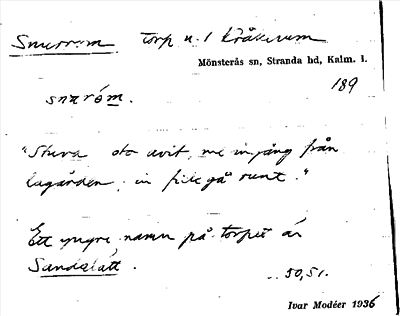 Snurrom torp u. 1 Kråkerum
Mönsterås sn, Stranda hd, Kalm. l.
189
snuróm.
"Stuva ste avit, me ingång från
lagården, in fick gå runt."
Ett yngre namn på torpet är
Sandslätt.
50, 51.
Ivar Modéer 1936